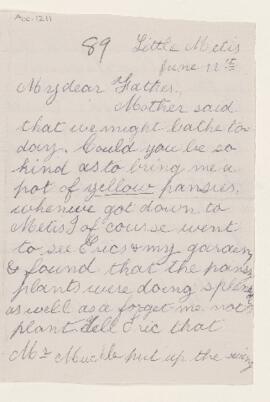 Acc. 1211
89
Little Metis
June 12th
My dear Father,
Mother said
that we might bathe to
day. Could you be so
kind as to bring me a
pot of yellow pansies.
when we got down to
Metis I of course went
to see Erics & my garden
& found that the pansy
plants were doing
as well as a forget me not
plant. Tell Eric that
Mr put up the swing